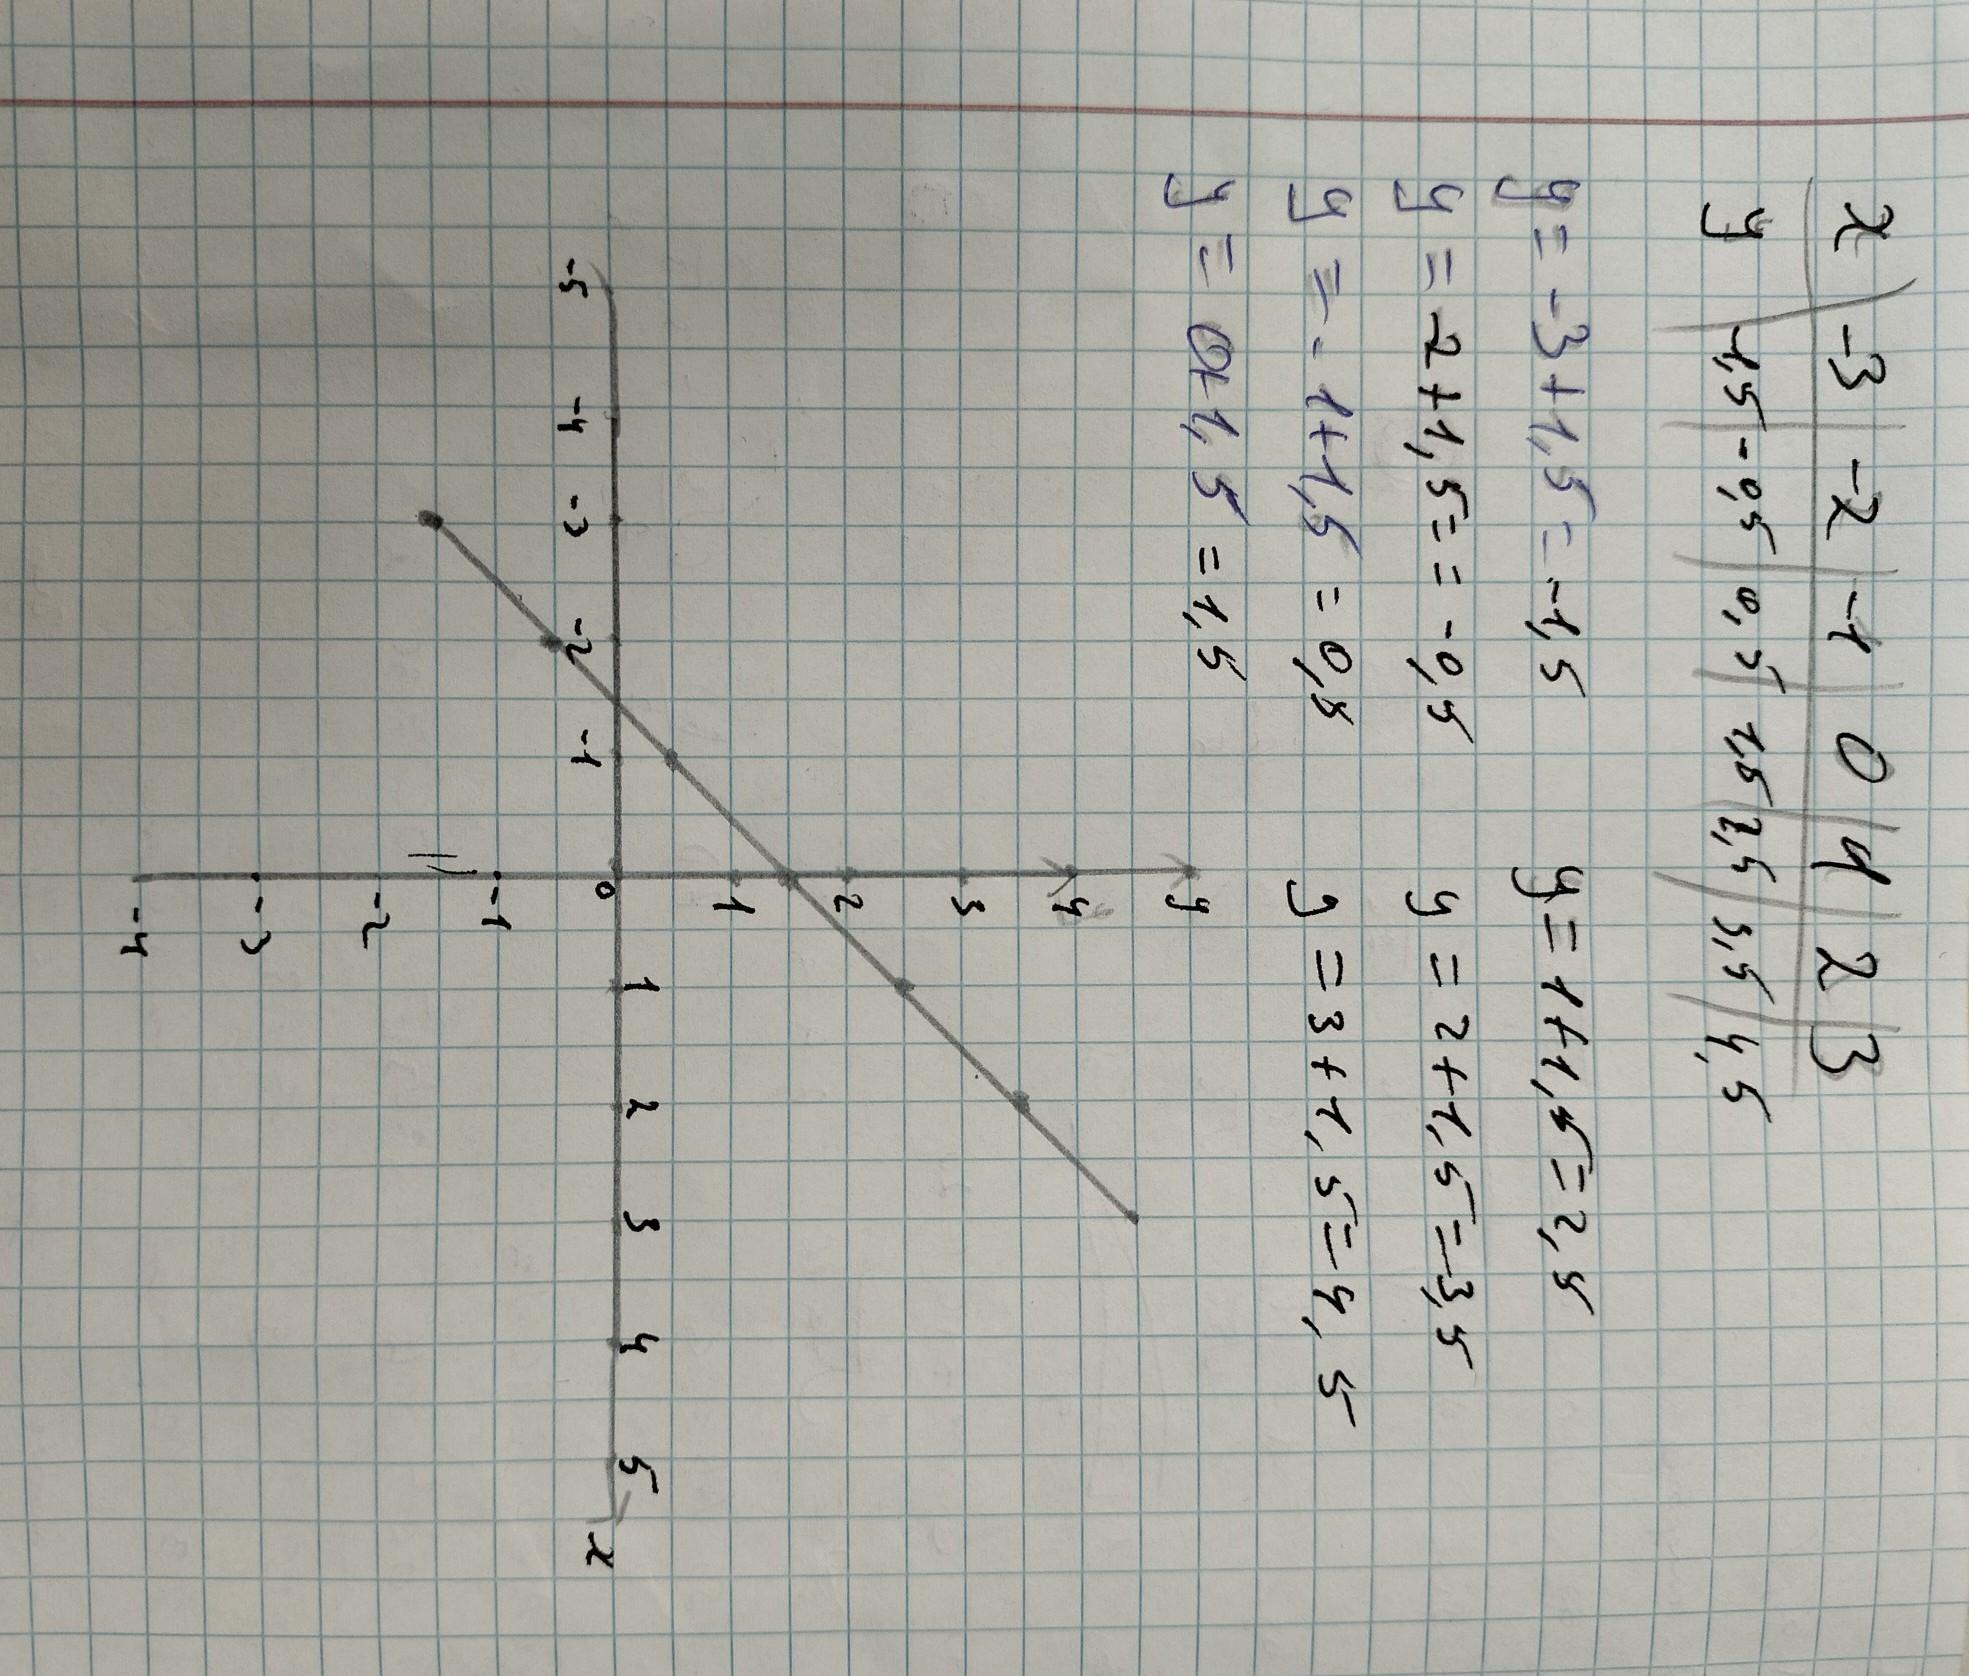 x -3 -2 -1 0 1 2 3
y -1,5 -0,5 0,5 1,5 2,5 3,5 4,5
y = -3+1,5 = -1,5 y = 1+1,5 = 2,5
y = -2+1,5 = = -0,5 y = 2+1,5 = 3,5
y = -1+1,5 = 0,5 y = 3+1,5 = 4,5
y = 0+1,5 = 1,5
y
4
3
2
1
-5 -4 -3 -2 -1 0 1 2 3 4 5 x
-1
-2
-3
-4